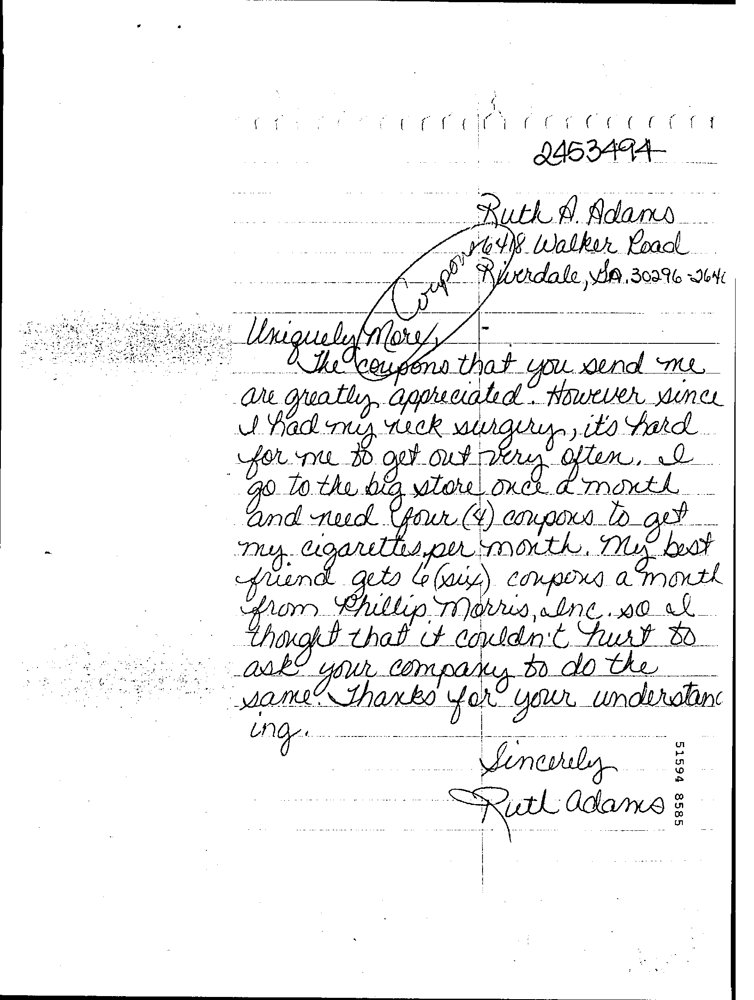 2453494
Ruth A. Adams
6418 Walker Road
Coupons
Riverdale, GA. 30296-264
Uniquely More,
The coupons that you send me
are greatly appreciated. However since
I had my neck surgery, it's hard
for me to get out very often. I
go to the big store once a month
and need four (4) coupons to get
my cigarettes per month. My best
friend gets 6 (six) coupons a month
from Phillip Morris, Inc. so I
thought that it couldn't hurt to
ask your company to do the
same. Thanks for your understand
ing.
Sincerely
Ruth Adams
51594 8585